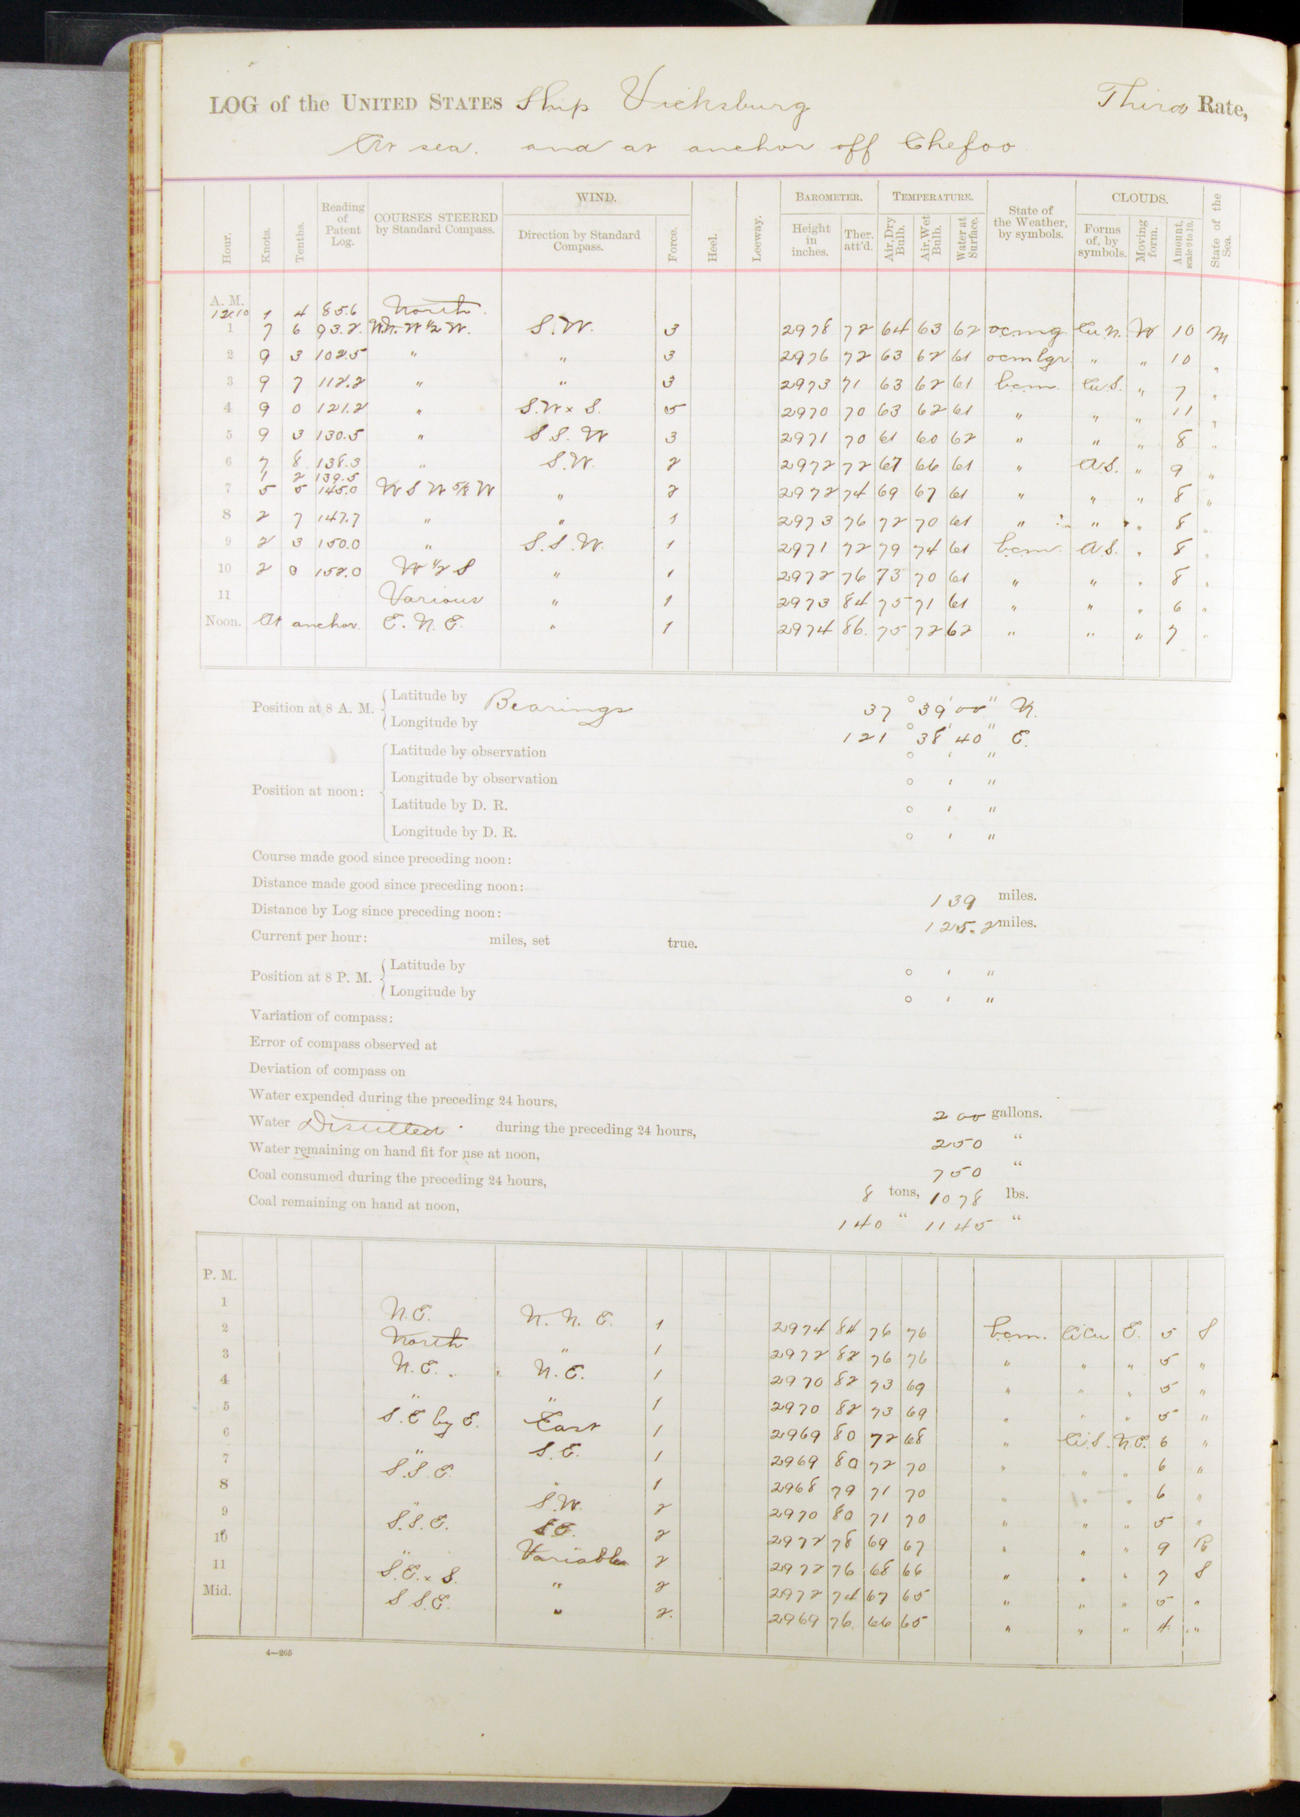 LOG of the UNITED STATES Ship Vicksburg Third Rate,
At sea. and at anchor off Chefoo
Hour. Knots. Tenths. Reading of Patent Log. COURSES STEERED by Standard Compass. WIND. Direction by Standard Compass. Force. Heel. Leeway. BAROMETER. Height in inches. Ther. att'd. TEMPERATURE. Air, Dry Bulb. Air, Wet Bulb. Water at Surface. State of the Weather, by symbols. CLOUDS. Forms of, by symbols. Moving form. Amount, scale 0 to 10. State of the Sea.
A. M.
12 10 1 4 85.6 North.
1 7 6 93.2. W 1/2 W. S.W. 3 2978 72 64 63 62 ocmg Cu.N. W 10 M
2 9 3 102.5 " " 3 2976 72 63 62 61 ocmlgr " " 10 "
3 9 7 112.2 " " 3 2973 71 63 62 61 bcm. Cu.S. " 7 "
4 9 0 121.2 " S.W x S. 5 2970 70 63 62 61 " " " 11 "
5 9 3 130.5 " S S. W 3 2971 70 61 60 62 " " " 8 "
6 7 8 138.3 " S.W. 2 2972 72 67 66 61 " A S. " 9 "
1 2 139.5
7 5 5 145.0 W S W 5/8 W " 2 2972 74 69 67 61 " " " 8 "
8 2 7 147.7 " " 1 2973 76 72 70 61 " " " 8 "
9 2 3 150.0 " S.S.W. 1 2971 72 79 74 61 bcm. A S. " 8 "
10 2 0 152.0 W 1/2 S " 1 2972 76 73 70 61 " " " 8 "
11 Various " 1 2973 84 75 71 61 " " " 6 "
Noon. At anchor. E. N. E. " 1 2974 86. 75 72 62 " " " 7 "
Position at 8 A. M. Latitude by Bearings 37 ° 39 ' 00 " N.
Longitude by 121 ° 38 ' 40 " E.
Position at noon: Latitude by observation ° ' "
Longitude by observation ° ' "
Latitude by D. R. ° ' "
Longitude by D. R. ° ' "
Course made good since preceding noon:
Distance made good since preceding noon: 139 miles.
Distance by Log since preceding noon: 125.2 miles.
Current per hour: miles, set true.
Position at 8 P. M. Latitude by ° ' "
Longitude by ° ' "
Variation of compass:
Error of compass observed at
Deviation of compass on
Water expended during the preceding 24 hours, 200 gallons.
Water Distilled during the preceding 24 hours, 250 "
Water remaining on hand fit for use at noon, 750 "
Coal consumed during the preceding 24 hours, 8 tons, 1078 lbs.
Coal remaining on hand at noon, 140 " 1145 "
P. M.
1 N.E. N. N. E. 1 2974 84 76 76 bcm. Ci Cu E. 5 S
2 North " 1 2972 82 76 76 " " " 5 "
3 N.E. N.E. 1 2970 82 73 69 " " " 5 "
4 " " 1 2970 82 73 69 " " " 5 "
5 S.E by E. East 1 2969 80 72 68 " Ci.S. N.E. 6 "
6 " S.E. 1 2969 80 72 70 " " " 6 "
7 S.S.E. " 1 2968 79 71 70 " " " 6 "
8 " S.W. 2 2970 80 71 70 " " " 5 "
9 S.S.E. S.E. 2 2972 78 69 67 " " " 9 R
10 " Variable 2 2972 76 68 66 " " " 7 S
11 S.E. x S. " 2 2972 74 67 65 " " " 5 "
Mid. S S.E. " 2. 2969 76. 66 65 " " " 4 "
4—265